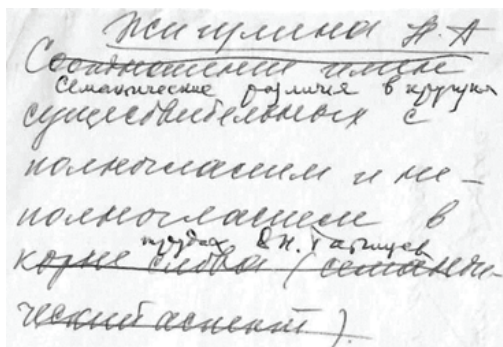 Жигулина Н. А
Соотношение имен
Семантические различия в кругу
существительных с
полногласием и не-
полногласием в
трудах В.Н. Татищев
корне слова (семанти-
ческий аспект).